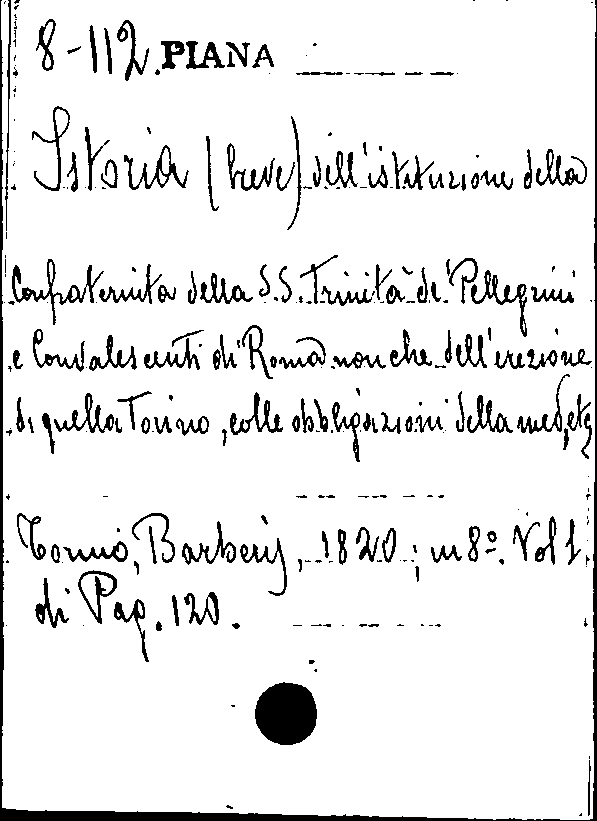 8-112. PIANA
Istoria (breve) dell'istituzione della
Confraternita della S.S. Trinità de' Pellegrini
e Convalescenti di Roma nonche dell'erezione
di quella Torino, colle obbligazioni della med, etc
Torino, Barberis, 1820; in 8º. Vol 1.
di Pag. 120.